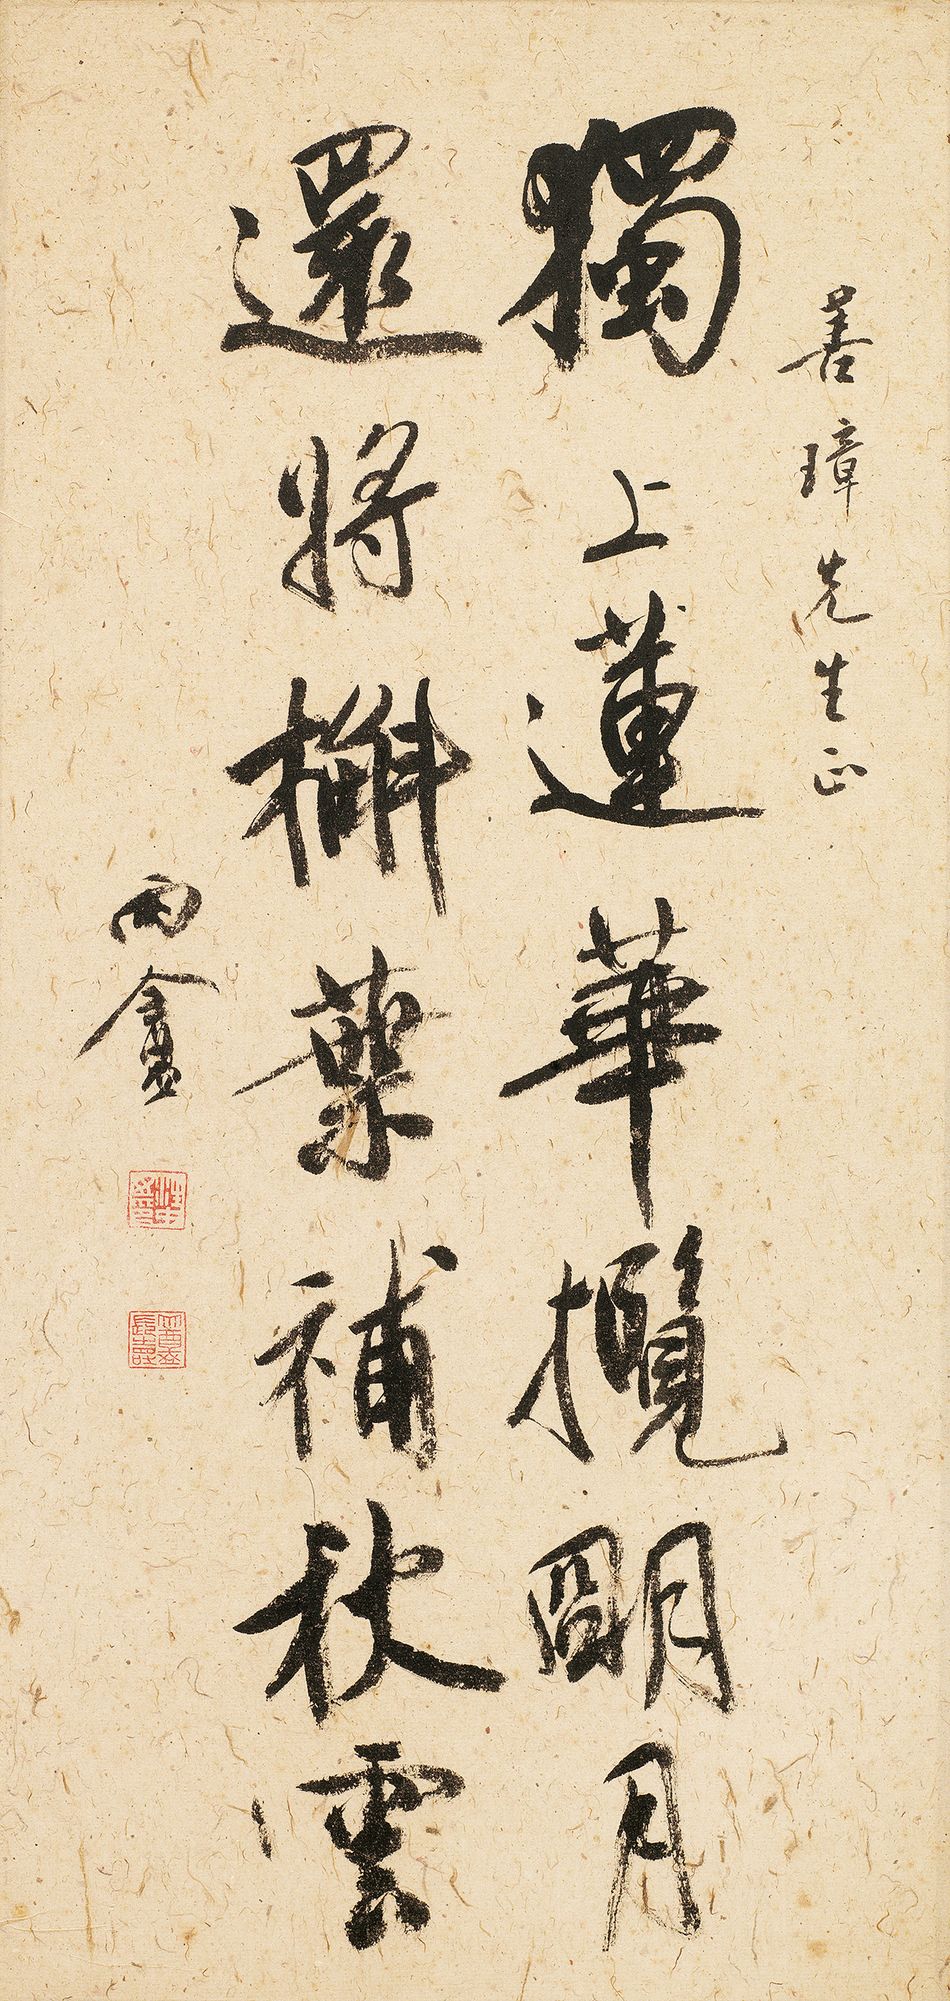 善璋先生正
獨上蓮華攬明月
還將槲葉補秋雲
雨盦